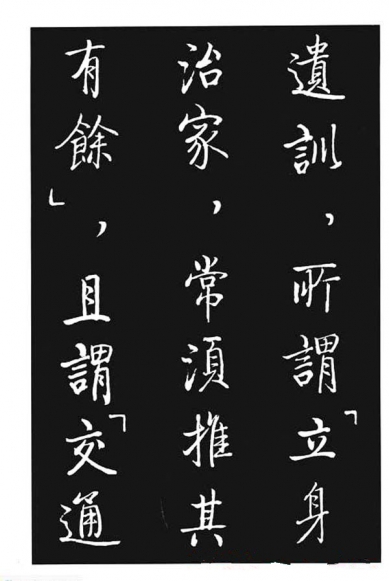 遺訓，所謂「立身
治家，常須推其
有餘」，且謂「交通